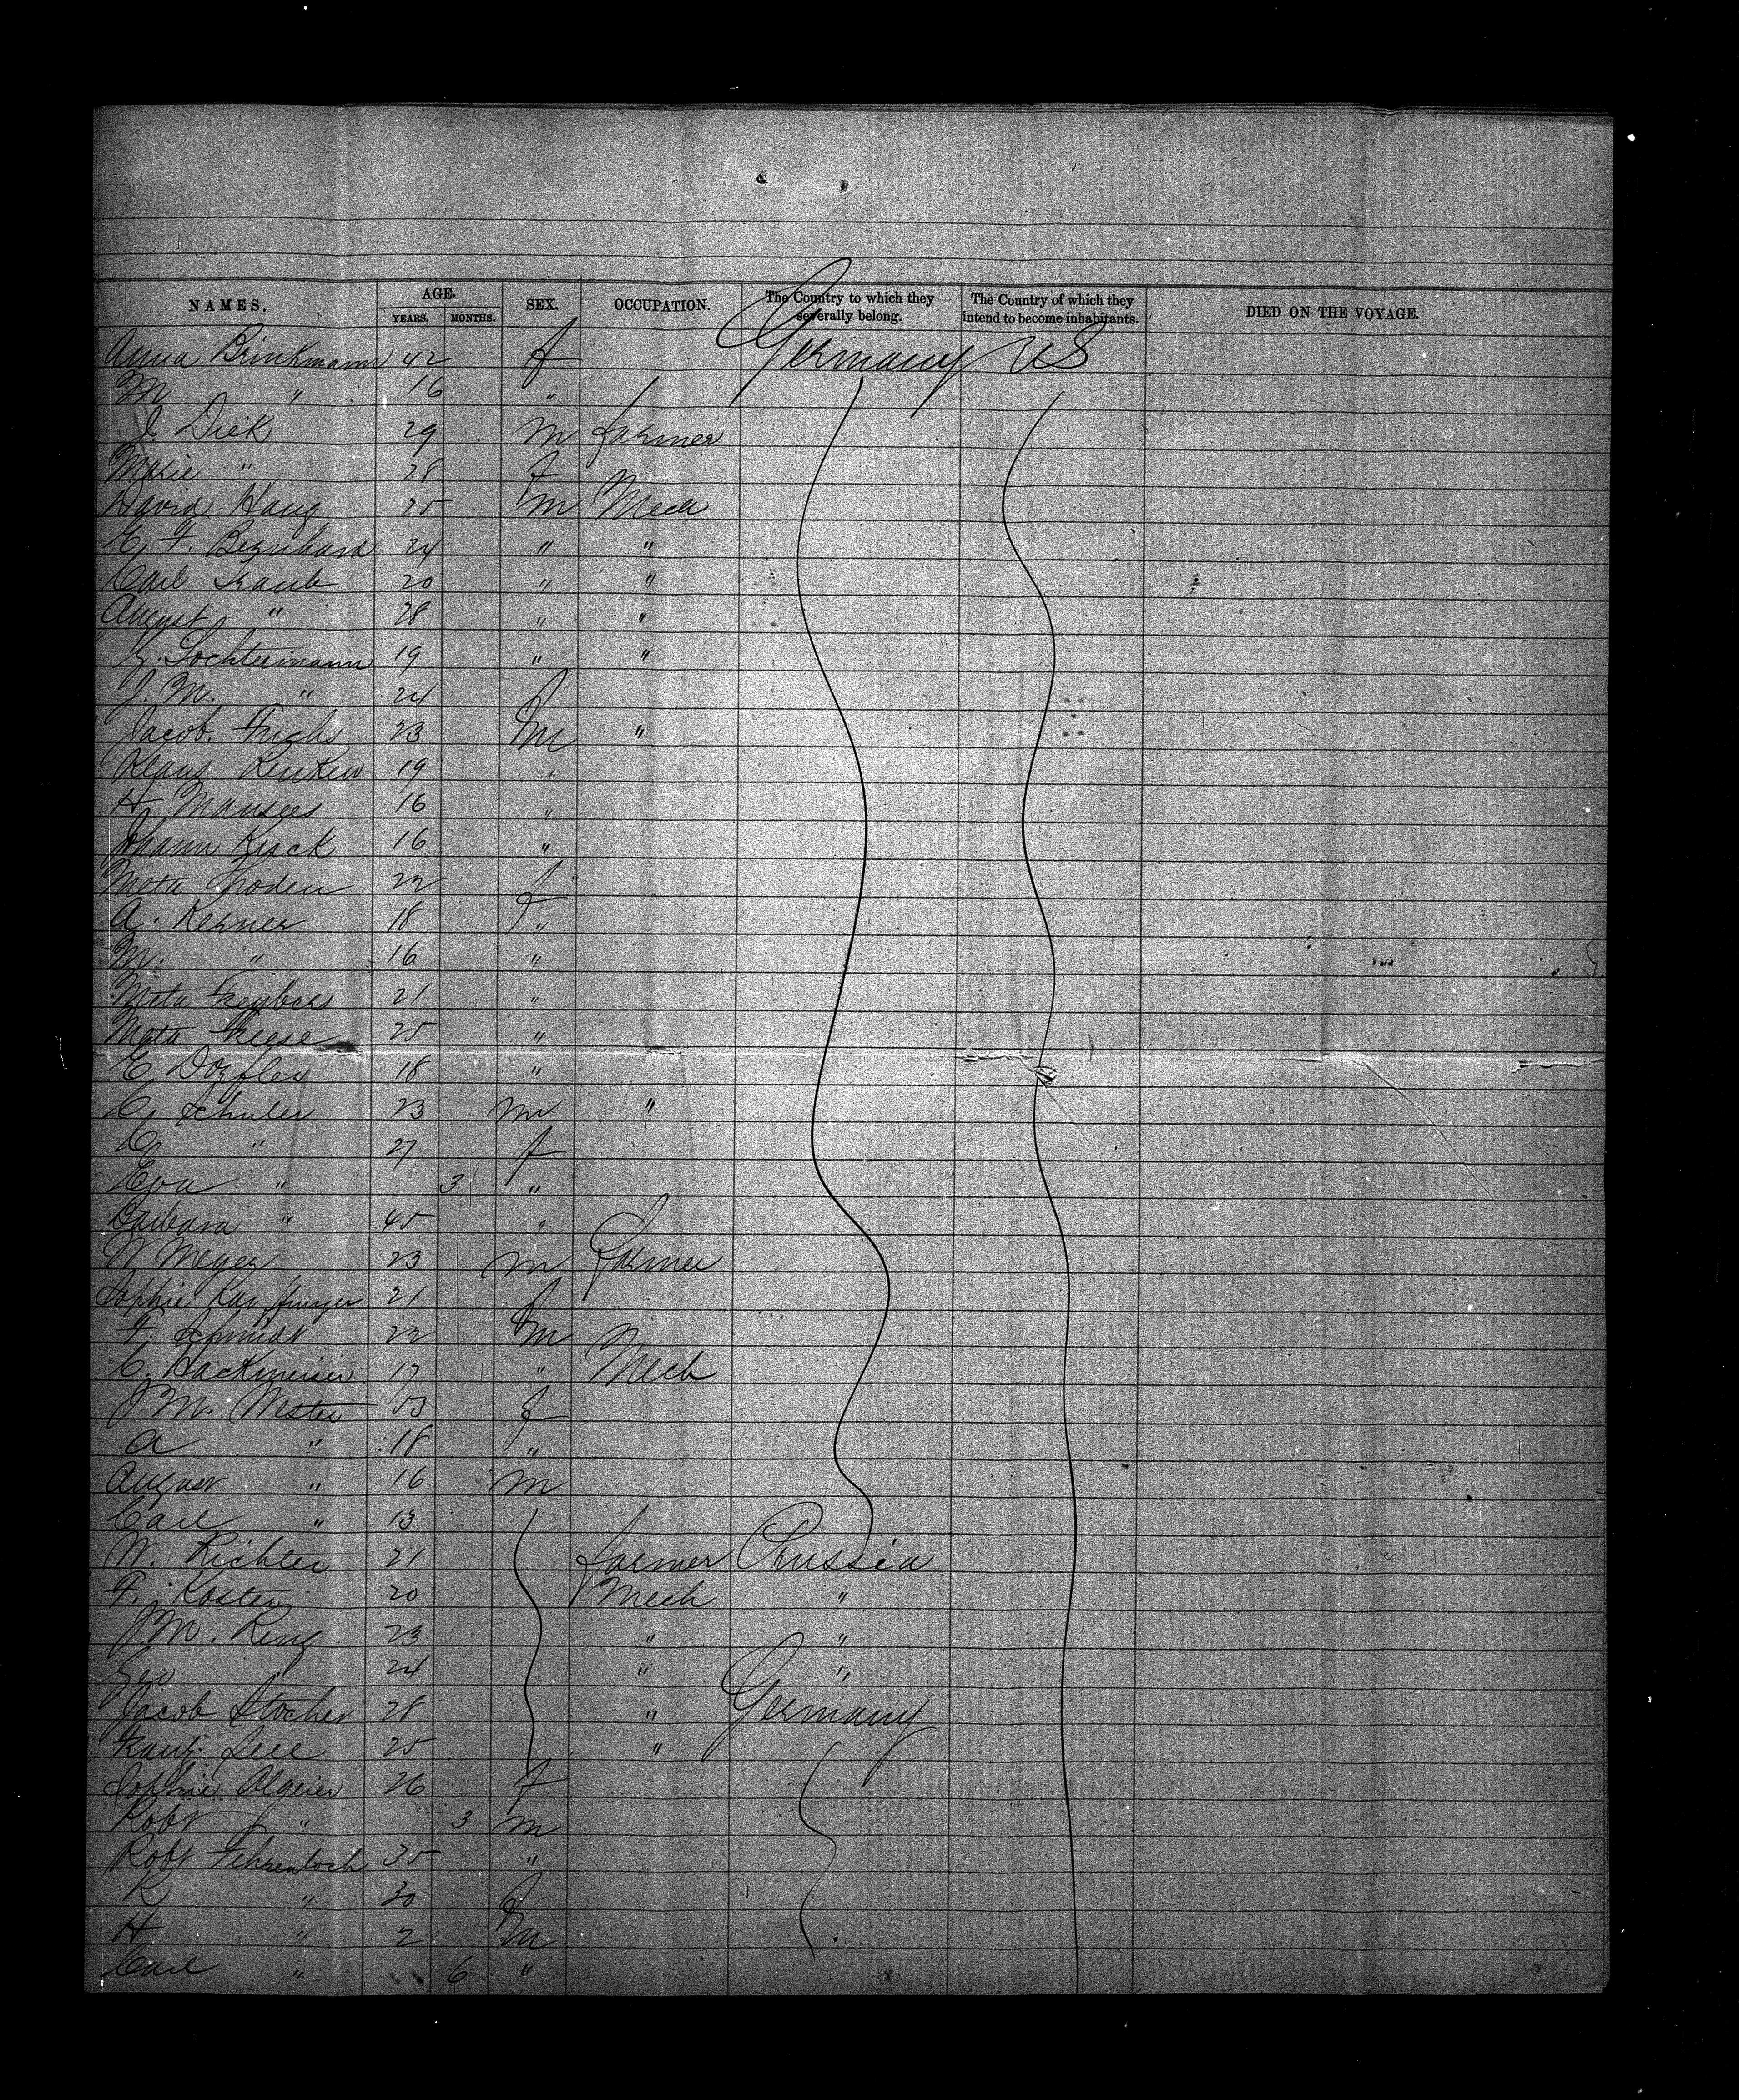 NAMES. AGE. YEARS. MONTHS. SEX. OCCUPATION. The Country to which they severally belong. The Country of which they intend to become inhabitants. DIED ON THE VOYAGE.
Anna Brinkmann 42 f Germany US
M " 16 "
J. Dick 29 m farmer
Marie " 28 f
David Haug 25 m Mech
F. Bernhard 24 " "
Carl Traub 20 " "
August " 28 " "
Lochtermann 19 " "
J. M. " 24 f
Jacob 23 m "
Klaus Renken 19 "
H. Mansees 16 "
Johann Kück 16 "
Meta 22 f
A. Kerner 18 "
M. " 16 "
Meta 21 "
Meta Freese 25 "
E. Dorfler 18 "
C. Schuler 23 m "
C. " 27 f
Eva " 3 "
Barbara " 45 "
N Meyer 23 m farmer
Sophie 21 f
F. Schmidt 22 m
C. Hackmeier 17 " Mech
J M. Mester 53 f
A " 18 "
August " 16 m
Carl " 13
W. Richter 21 farmer Prussia
F. Koster 20 Mech "
J M. Ring 23 " "
Geo " 24 " "
Jacob Stocher 28 " Germany
25 "
Sophie Algeier 26 f
Robt " 3 m
Robt Fehrenbach 35 "
R " 30 f
H " 2 m
Carl " 6 "